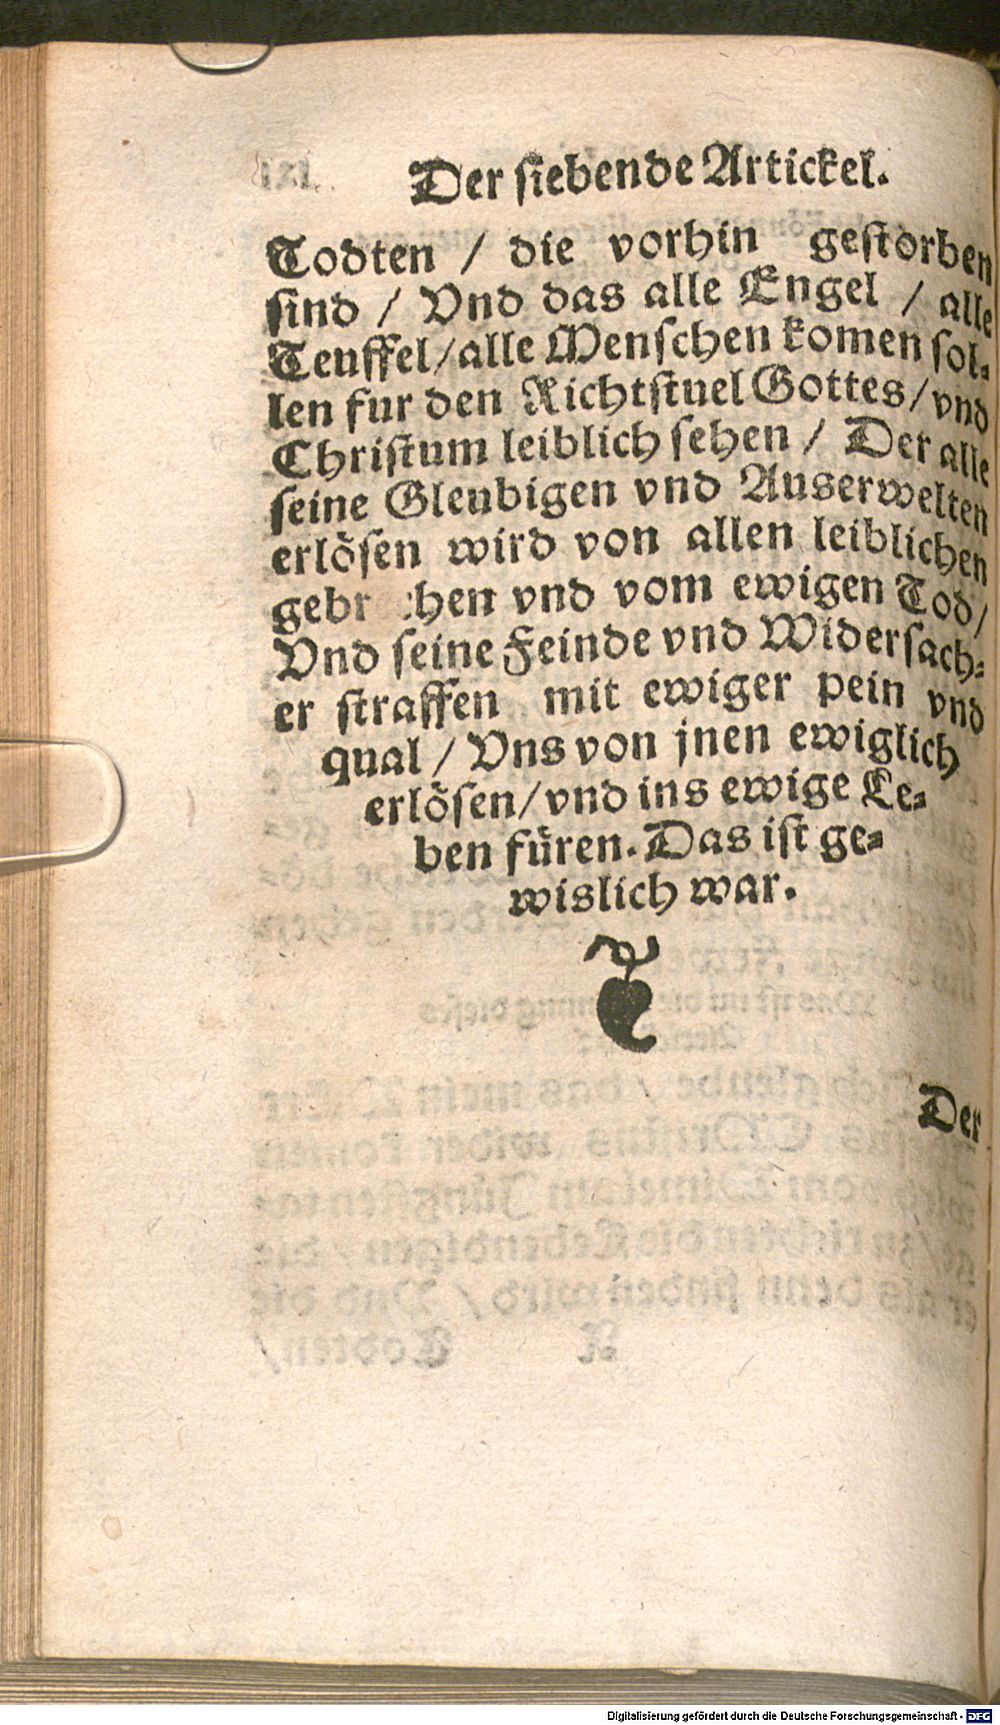 Der siebende Artickel.
Todten / die vorhin gestorben
sind / Vnd das alle Engel / alle
Teuffel/alle Menschen komen sol-
len fur den Richtstuel Gottes/vnd
Christum leiblich sehen / Der alle
seine Gleubigen vnd Auserwelten
erlösen wird von allen leiblichen
vnd vom ewigen Tod/
Vnd seine Feinde vnd Widersach-
er straffen mit ewiger pein vnd
qual / Vns von jnen ewiglich
erlösen/vnd ins ewige Le-
ben füren. Das ist ge-
wislich war.
Der
Digitalisierung gefördert durch die Deutsche Forschungsgemeinschaft - DFG